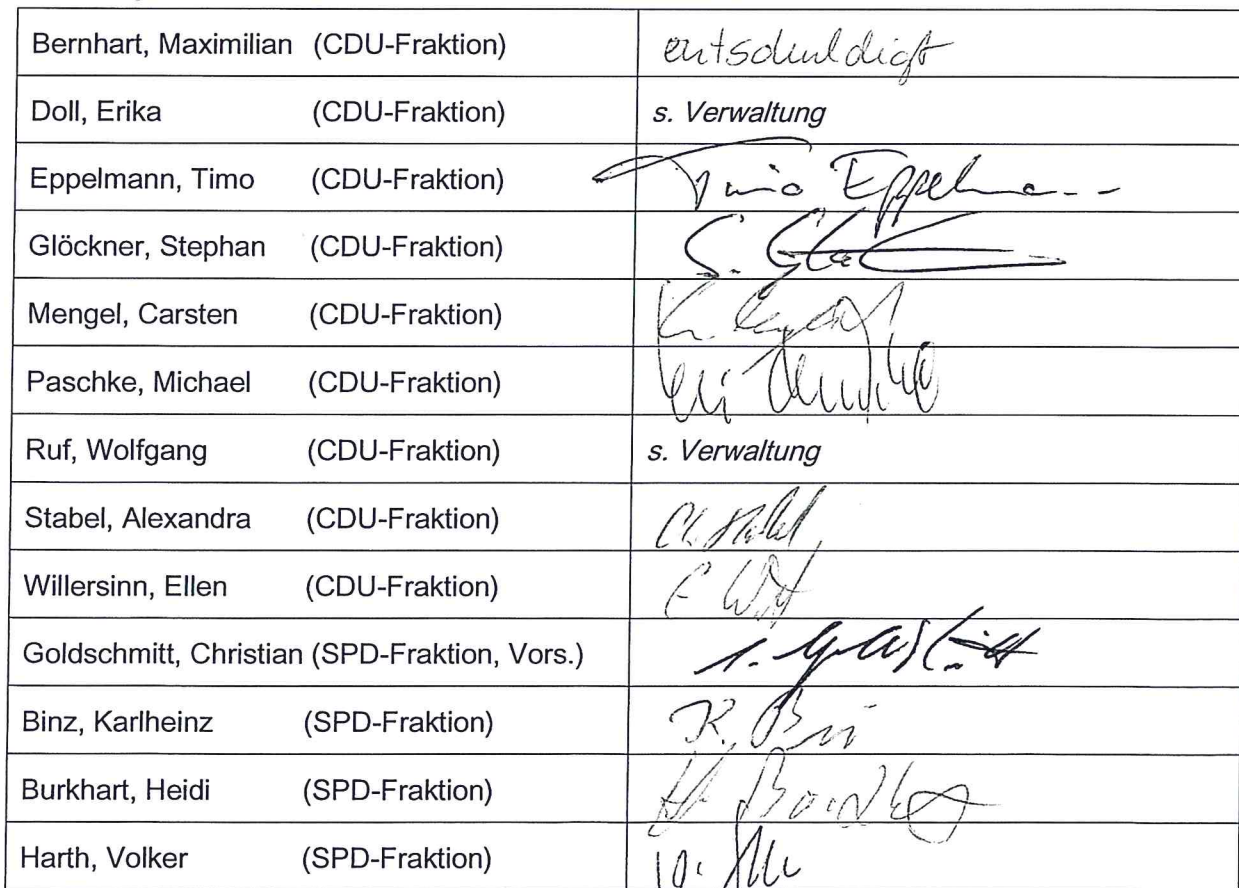 Bernhart, Maximilian (CDU-Fraktion) entschuldigt
Doll, Erika (CDU-Fraktion) s. Verwaltung
Eppelmann, Timo (CDU-Fraktion) Timo Eppelmann
Glöckner, Stephan (CDU-Fraktion) S.
Mengel, Carsten (CDU-Fraktion)
Paschke, Michael (CDU-Fraktion)
Ruf, Wolfgang (CDU-Fraktion) s. Verwaltung
Stabel, Alexandra (CDU-Fraktion)
Willersinn, Ellen (CDU-Fraktion) E
Goldschmitt, Christian (SPD-Fraktion, Vors.)
Binz, Karlheinz (SPD-Fraktion) K.
Burkhart, Heidi (SPD-Fraktion)
Harth, Volker (SPD-Fraktion)